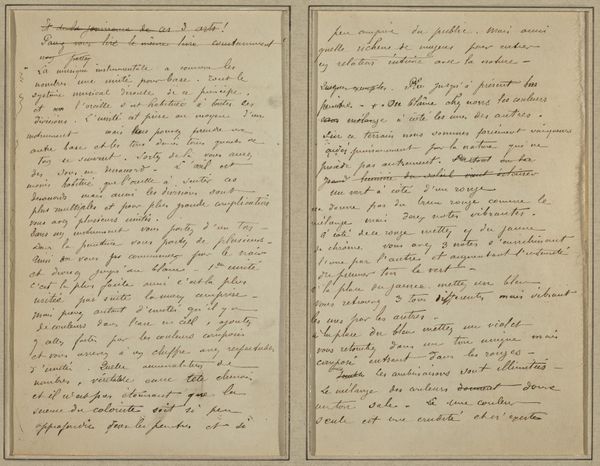 Et de la jouissance de ces 3 arts!
vous partez
La musique instrumentale a comme les
nombres une unité pour base. Tout le
système musical découle de ce principe.
et l'oreille s'est habituée à toutes ces
divisions. L'unité est prise au moyen d'un
instrument mais vous pouvez prendre une
autre base et les tons demi tons quarts de
ton se suivent. Sortez de là vous avez
des sons en désaccord. L'œil est
moins habitué que l'oreille à sentir ces
désaccords mais aussi les divisions sont
plus multiples et pour plus grande complication
vous avez plusieurs unités.
Dans un instrument vous partez d'un ton
Dans la peinture vous partez de plusieurs.
Ainsi vous commencez par le noir
et divisez jusqu'au blanc - 1ère unité
c'est la plus facile aussi c'est la plus
usitée par suite la mieux comprise -
mais prenez autant d'unités qu'il y a
de couleurs dans l'arc en ciel, ajoutez
y celles faites par les couleurs composées
et vous arrivez à un chiffre assez respectable
d'unités. Quelle accumulation de
nombres, véritable casse tête chinois
et il n'est pas étonnant que la
science du coloriste soit si peu
approfondie par les peintres et si
peu comprise du public. Mais aussi
quelle richesse de moyens pour entrer
en relation intime avec la nature -
mélange à côté les unes des autres.
Sur ce terrain nous sommes forcément vainqueurs
puissamment par la nature qui ne
procède pas autrement.
un vert à côté d'un rouge
ne donne pas du brun rouge comme le
mélange mais deux notes vibrantes.
A côté de ce rouge mettez du jaune
de chrome vous avez 3 notes s'enrichissant
l'une par l'autre et augmentant l'intensité
du premier ton le vert -
à la place du jaune mettez un bleu
vous retrouvez 3 tons différents mais vibrant
les uns par les autres.
à la place du bleu mettez un violet
vous retombez dans un ton unique mais
composé entrant dans les rouges -
les combinaisons sont illimitées -
Le mélange des couleurs donne
un ton sale. Une couleur
seule est une crudité et n'existe